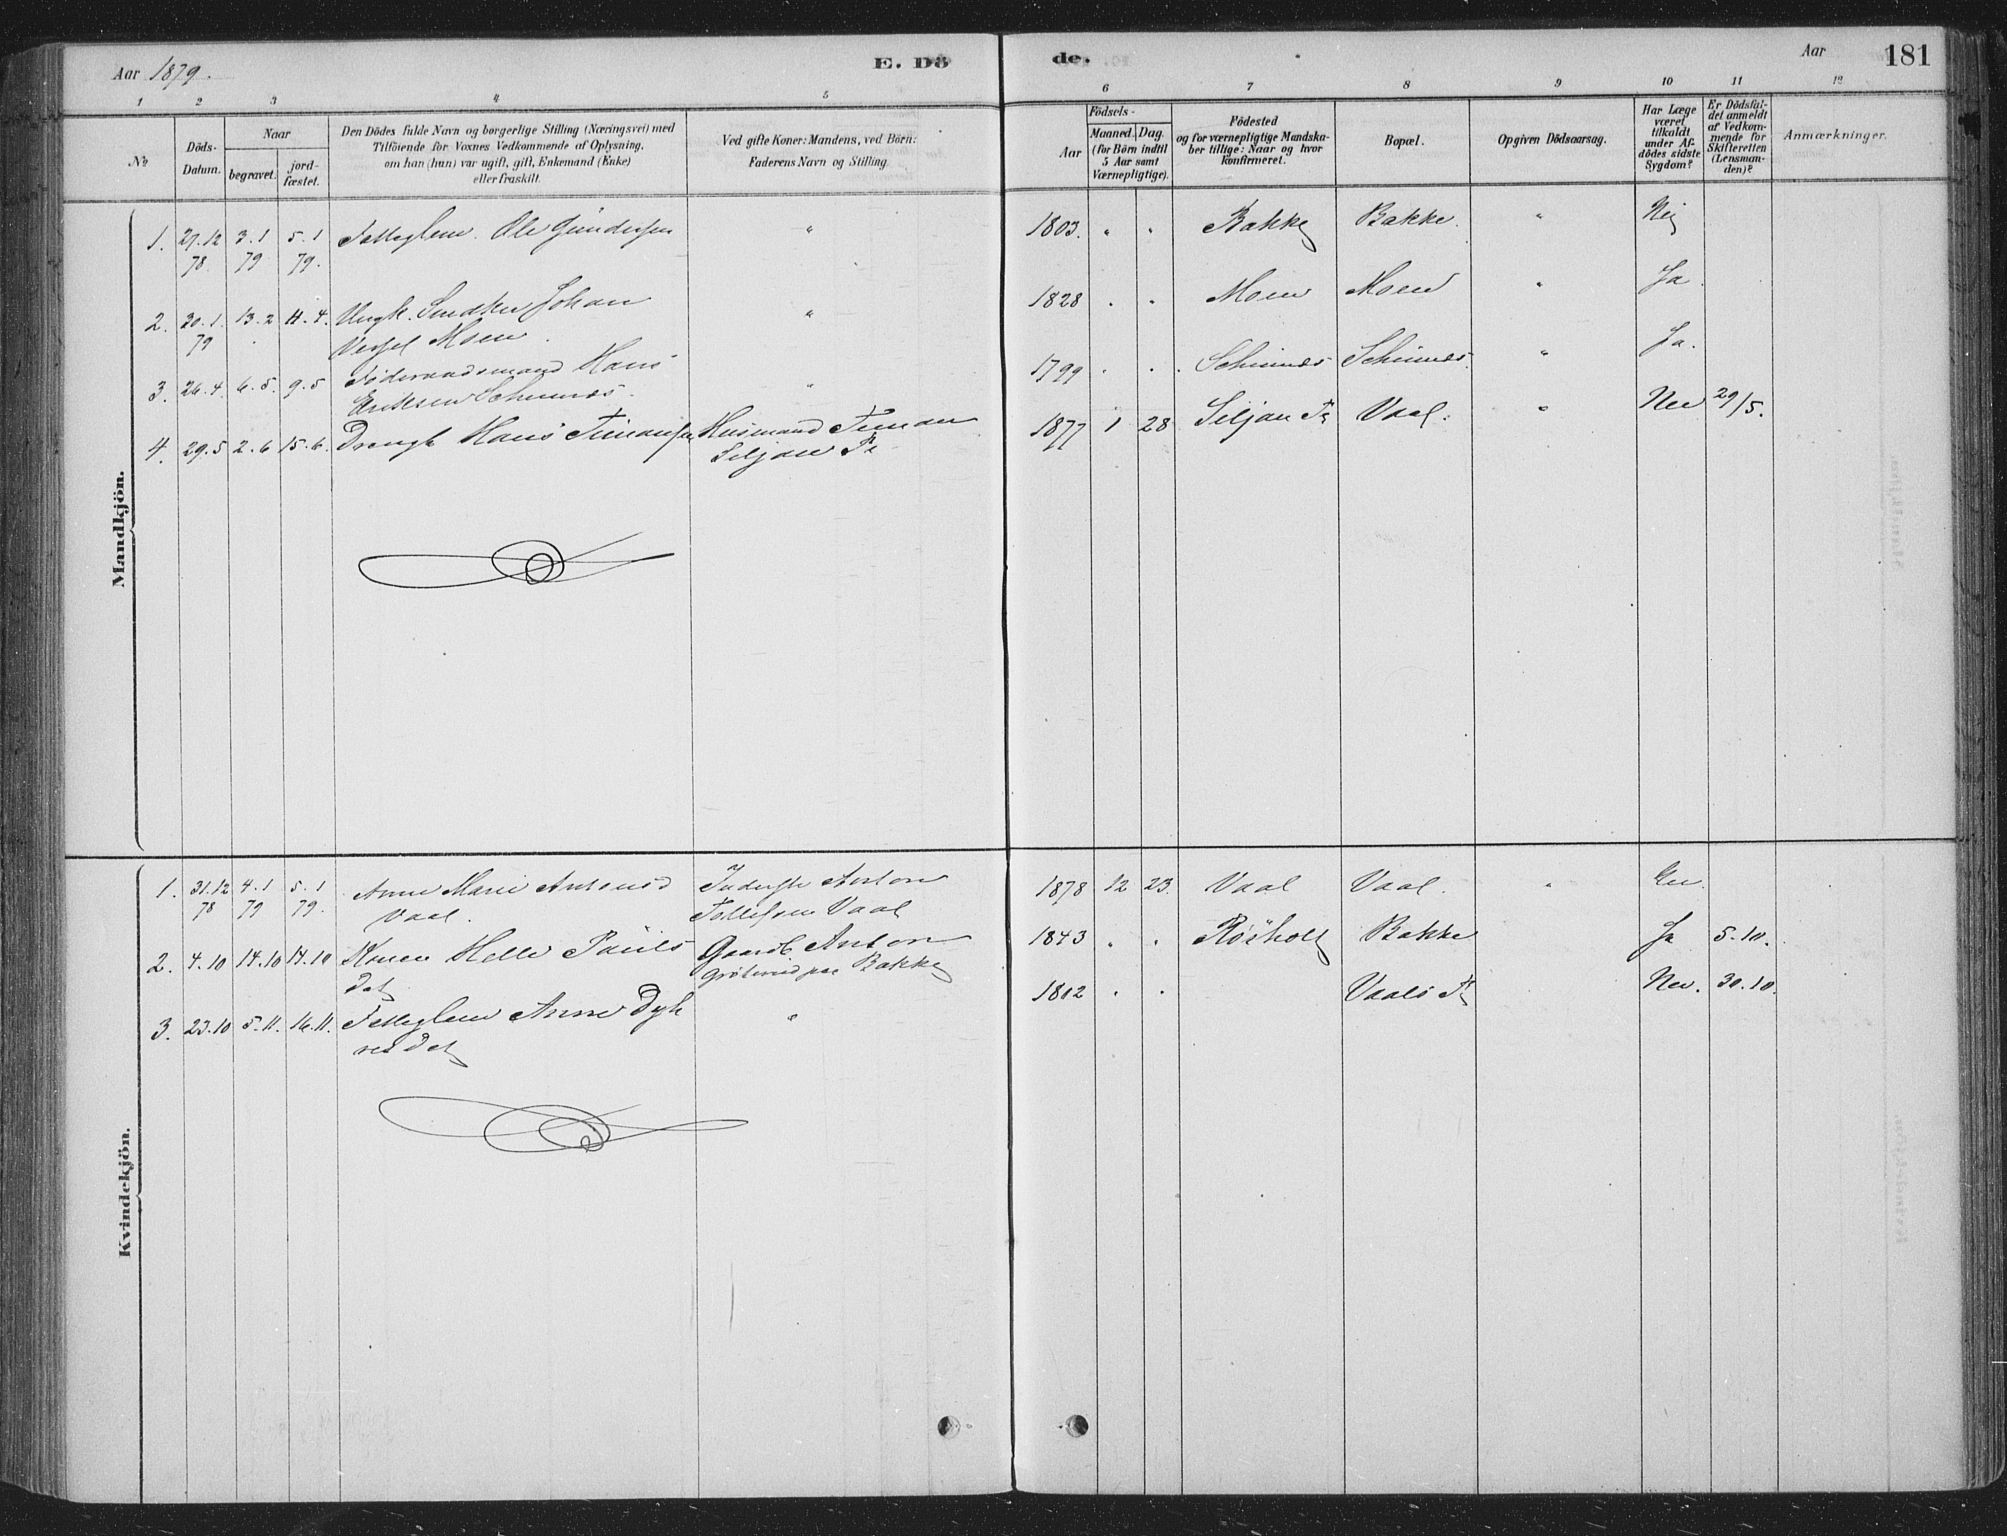 Aar 1879.
E. Dö
de.
Aar
181
1 2 3 4 5 6 7 8 9 10 11 12
No
Döds-
Datum.
Naar
begravet.
jord-
fæstet.
Den Dödes fulde Navn og borgerlige Stilling (Næringsvei) med
Tilföiende for Voxnes Vedkommende af Oplysning,
om han (hun) var ugift, gift, Enkemand (Enke)
eller fraskilt.
Ved gifte Koner: Mandens, ved Börn:
Faderens Navn og Stilling.
Födsels-
Aar
Maaned. Dag.
(for Börn indtil
5 Aar samt
Værnepligtige).
Födested
og for værnepligtige Mandska-
ber tillige: Naar og hvor
konfirmeret.
Bopæl.
Opgiven Dödsaarsag.
Har Læge
været
tilkaldt
under Af-
dödes sidste
Sygdom?
Er Dödsfal-
det anmeldt
af Vedkom-
mende for
Skifteretten
(Lensman-
den)?
Anmærkninger.
Mandkjön.
1. 29.12 3.1 5.1 Ole Gundersen " 1803. " " Bakke Bakke. " Nei
78. 79 79.
2. 30.1. 13.2 14.4. Ungk. Johan " 1828 . . Moen Moen " Ja.
79 Moen.
3. 26.4. 6.5. 9.5 Föderaadsmand Hans " 1799 . . "  Ja.
Eriksen
4. 29.5 2.6 15.6. Drengb. Hans Husmand 1877 1 28 Siljan Vaal. " Nei 29/5.
Siljan
Kvindekjön.
1. 31.12 4.1 5.1 Anne Marie Antonsd Anton 1878 12 23. Vaal Vaal. " Nei.
78 79 79. Vaal. Tollefsen Vaal
2. 4.10 14.10 14.10 Konen Helle Pauls Gaardb. Anton 1843 . . Röiholt Bakke Ja 5.10.
Dat. paa Bakke
3. 23.10 5.11. 16.11. Anne " 1812 . . Vaals Nei. 30.10.
Dat.